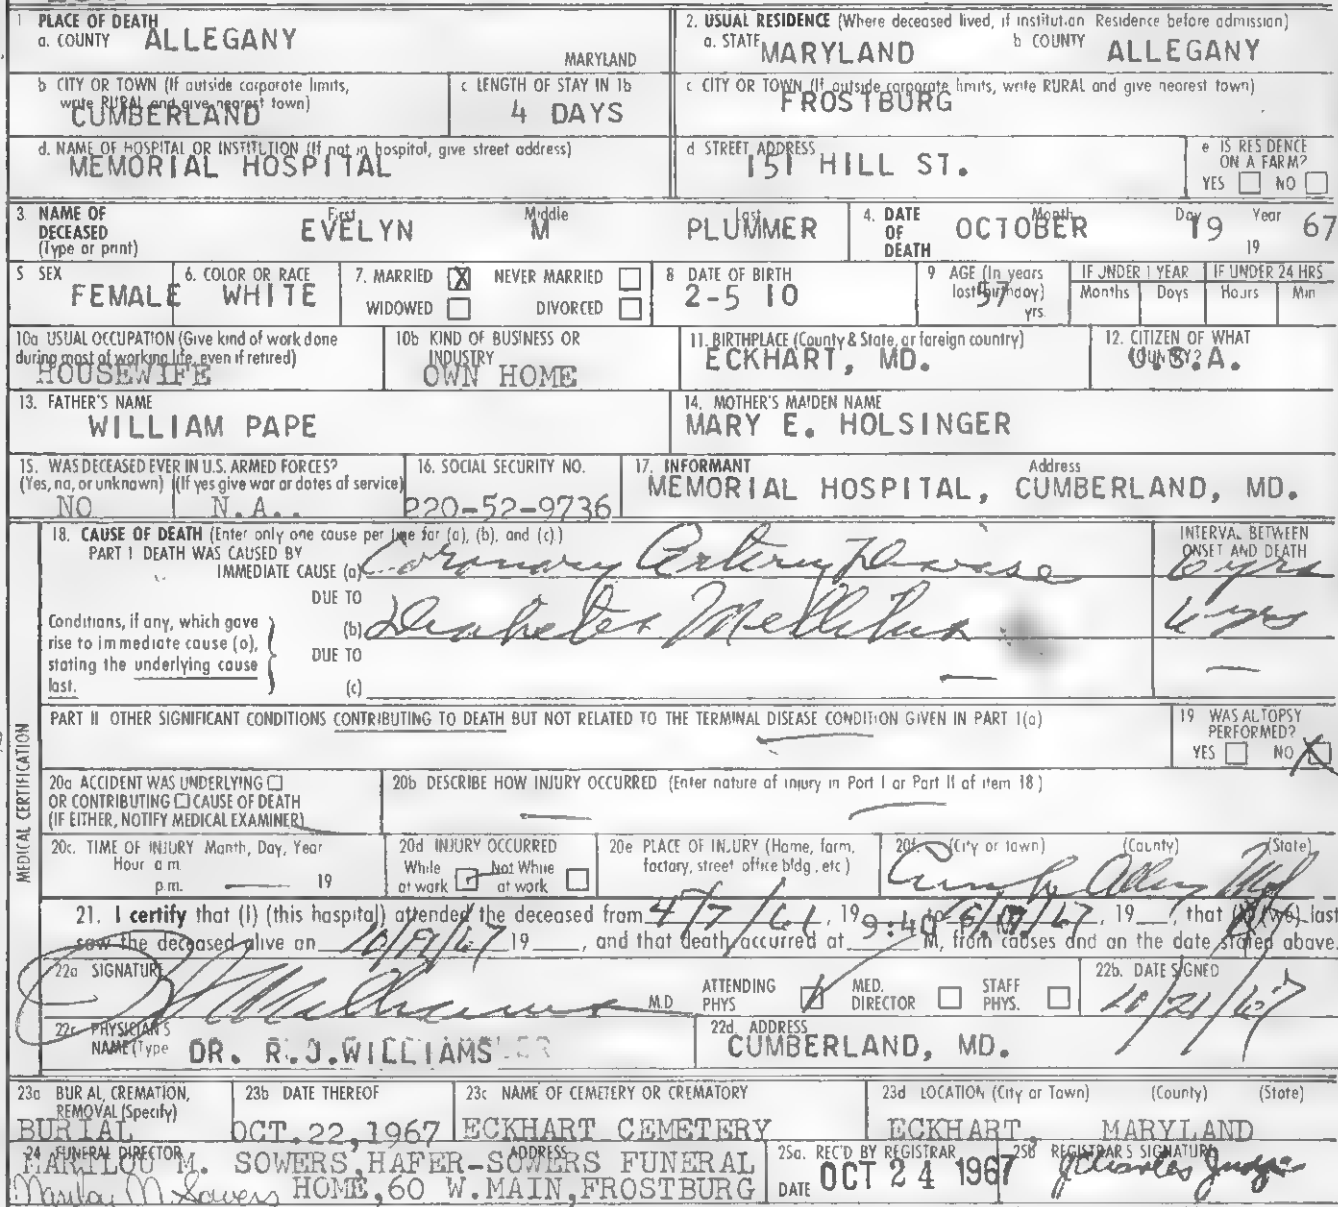 1 PLACE OF DEATH
a. COUNTY ALLEGANY MARYLAND
2. USUAL RESIDENCE (Where deceased lived, if institution Residence before admission)
a. STATE MARYLAND b COUNTY ALLEGANY
b CITY OR TOWN (If outside corporate limits, write RURAL and give nearest town)
CUMBERLAND
c LENGTH OF STAY IN 1b
4 DAYS
c CITY OR TOWN (If outside corporate limits, write RURAL and give nearest town)
FROSTBURG
d. NAME OF HOSPITAL OR INSTITUTION (If not in hospital, give street address)
MEMORIAL HOSPITAL
d STREET ADDRESS
151 HILL ST.
e IS RESIDENCE ON A FARM?
YES NO
3. NAME OF DECEASED (Type or print)
First Middle Last
EVELYN M PLUMMER
4. DATE OF DEATH
Month Day Year
OCTOBER 19 19 67
5 SEX
FEMALE
6. COLOR OR RACE
WHITE
7. MARRIED X NEVER MARRIED
WIDOWED DIVORCED
8 DATE OF BIRTH
2-5 10
9 AGE (In years last birthday)
57 yrs.
IF UNDER 1 YEAR
Months Days
IF UNDER 24 HRS
Hours Min
10a USUAL OCCUPATION (Give kind of work done during most of working life, even if retired)
HOUSEWIFE
10b KIND OF BUSINESS OR INDUSTRY
OWN HOME
11. BIRTHPLACE (County & State, or foreign country)
ECKHART, MD.
12. CITIZEN OF WHAT COUNTRY?
U.S.A.
13. FATHER'S NAME
WILLIAM PAPE
14. MOTHER'S MAIDEN NAME
MARY E. HOLSINGER
15. WAS DECEASED EVER IN U.S. ARMED FORCES?
(Yes, no, or unknown) (If yes give war or dates of service)
NO N.A..
16. SOCIAL SECURITY NO.
220-52-9736
17. INFORMANT Address
MEMORIAL HOSPITAL, CUMBERLAND, MD.
MEDICAL CERTIFICATION
18. CAUSE OF DEATH (Enter only one cause per line for (a), (b), and (c).)
INTERVAL BETWEEN ONSET AND DEATH
PART I DEATH WAS CAUSED BY
IMMEDIATE CAUSE (a) Coronary Artery Disease 6 yrs
DUE TO
Conditions, if any, which gave rise to immediate cause (a), stating the underlying cause last.
(b) Diabetes Mellitus 6 yrs
DUE TO
(c) — —
PART II OTHER SIGNIFICANT CONDITIONS CONTRIBUTING TO DEATH BUT NOT RELATED TO THE TERMINAL DISEASE CONDITION GIVEN IN PART I(a)
19 WAS AUTOPSY PERFORMED?
YES NO X
20a ACCIDENT WAS UNDERLYING
OR CONTRIBUTING CAUSE OF DEATH
(IF EITHER, NOTIFY MEDICAL EXAMINER)
20b DESCRIBE HOW INJURY OCCURRED (Enter nature of injury in Part I or Part II of item 18)
20c. TIME OF INJURY Month, Day, Year
Hour a m
p.m. — 19
20d INJURY OCCURRED
While at work Not While at work
20e PLACE OF INJURY (Home, farm, factory, street office bldg, etc)
20f. (City or town) (County) (State)
Cumb Alleg Md
21. I certify that (I) (this hospital) attended the deceased from 4/7/61, 19 to , 19 , that (I) (we) last
saw the deceased alive on 10/19/67 19 , and that death occurred at 9:40 P.M. M, from causes and on the date stated above.
22a SIGNATURE
R J Williams M.D
ATTENDING PHYS MED. DIRECTOR STAFF PHYS.
22b. DATE SIGNED
10/21/67
22c PHYSICIAN'S NAME (Type
DR. R.J.WILLIAMS
22d ADDRESS
CUMBERLAND, MD.
23a BURIAL, CREMATION, REMOVAL (Specify)
BURIAL
23b DATE THEREOF
OCT.22,1967
23c NAME OF CEMETERY OR CREMATORY
ECKHART CEMETERY
23d LOCATION (City or Town) (County) (State)
ECKHART, MARYLAND
24 FUNERAL DIRECTOR ADDRESS
MARILOU M. SOWERS,HAFER-SOWERS FUNERAL
Marilou M. Sowers HOME,60 W.MAIN,FROSTBURG
25a. REC'D BY REGISTRAR
DATE OCT 24 1967
25b REGISTRAR'S SIGNATURE
J Charles Judge